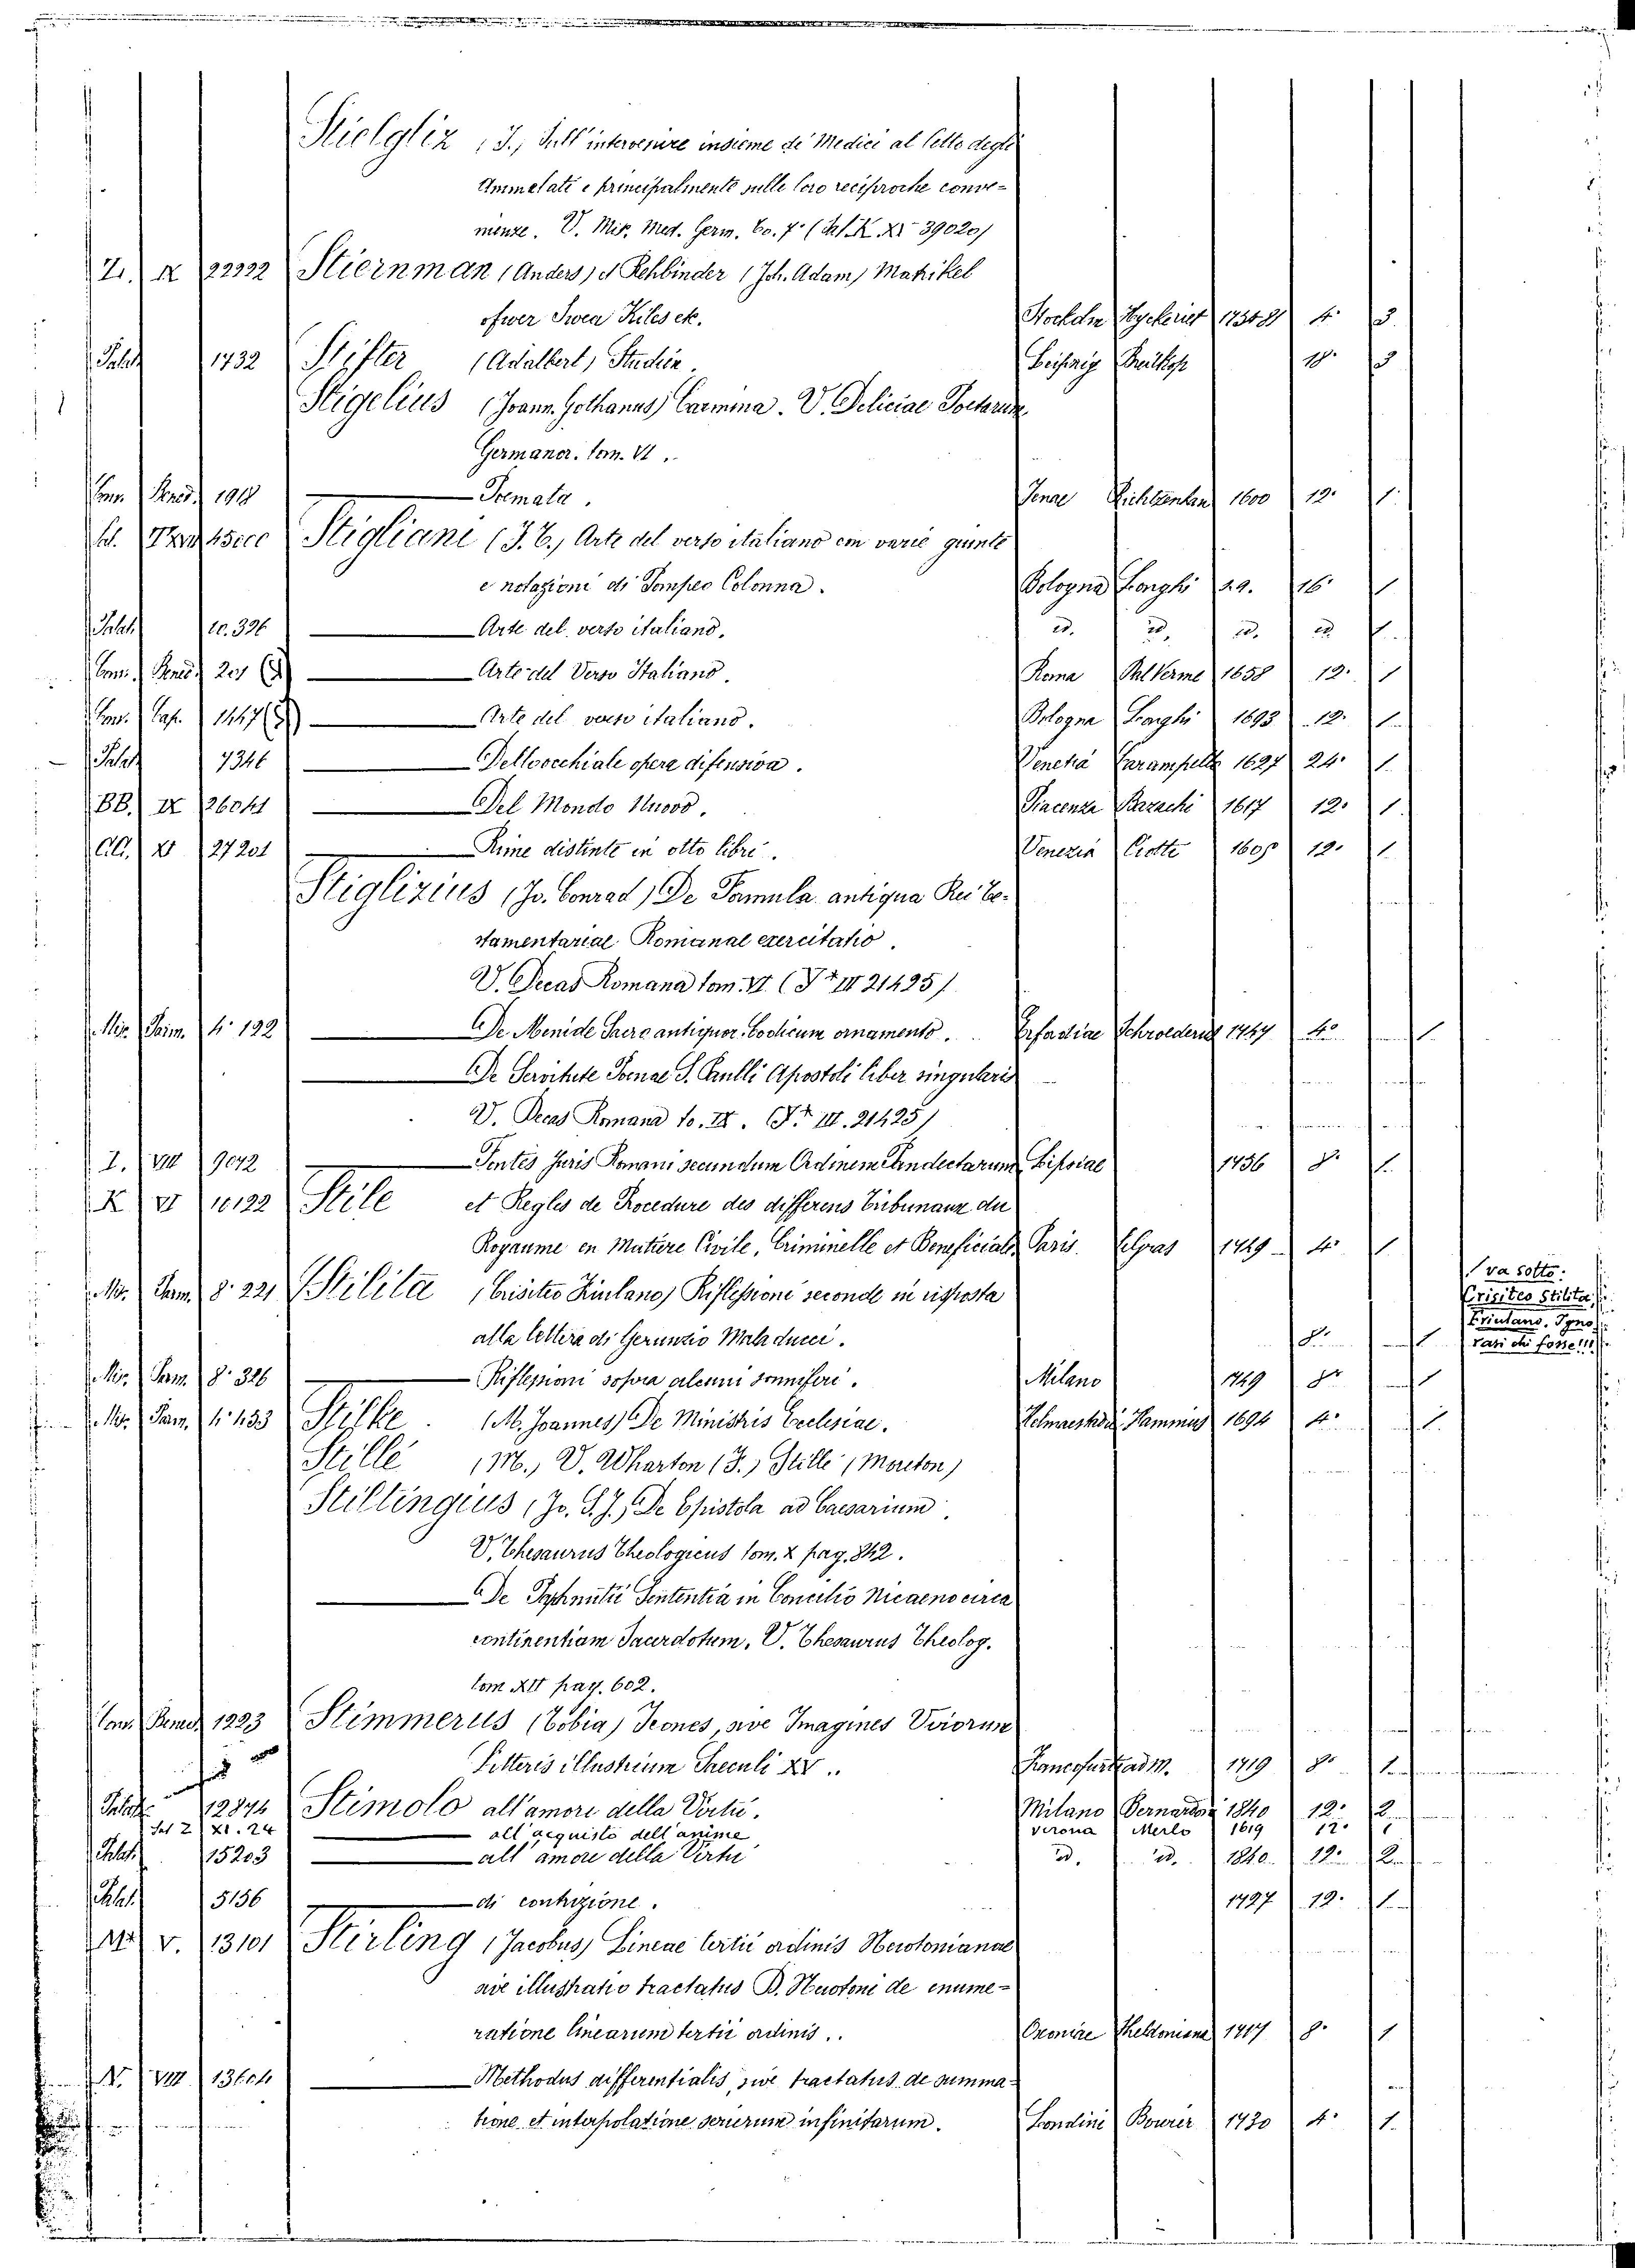 Stielgliz (J.) Sull'intervenire insieme di Medici al letto degli
Ammalati e principalmente sulle loro reciproche conve-
nienze. V. Mis. Med. Germ. to. 7. XI 39020)
Z. IX 22392 Stiernman (Anders) et Rehbinder (Joh. Adam) Matrikel
öfwer Swea Rikes etc. 4° 3
Palat. 1732 Stifter (Adalbert) Studien. Leipzig 18° 3
Stigelius (Joann. Gothanus) Carmina. V. Deliciae Poetarum
Germanor. tom. VI.
Poemata. Jenae 1600 12° 1
Stigliani (J. T.) Arte del verso italiano con varie giunte
e notazioni di Pompeo Colonna. Bologna Longhi 16° 1
Palat. 10.396 Arte del verso italiano. id. id. id. id. 1
Arte del Verso Italiano. Roma Dal Verme 1658 12° 1
Conv. Cap. 1447 Arte del verso italiano. Bologna Longhi 1693 12° 1
Palat. 7346 Dell'occhiale opera difensiva. Venetia 1627 24° 1
BB. IX 26041 Del Mondo Nuovo. Piacenza Bazachi 1617 12° 1
CC. XV 27201 Rime distinte in otto libri. Venezia Ciotti 1605 12° 1
Stiglizius (Jo. Conrad) De Formula antiqua Rei te-
stamentariae Romanae exercitatio.
V. Decas Romana tom. VI. III 21425)
Mis. 4° 192 De Menide Sacro antiquor. Codicum ornamento. 4° 1
De Servitute Poenae S. Paulli Apostoli liber singularis
V. Decas Romana to. IX. III. 21425)
I. VIII 9072 Fontes Juris Romani secundum Ordinem Pandectarum Lipsiae 1736 8° 1
X VI 10122 Stile et Regles de Procedure des differens Tribunaux du
Royaume en Matiere Civile, Criminelle et Beneficiale Paris 1719 4° 1
Mis. Farm. 8° 221 Stilita (Crisiteo Friulano) Riflessioni seconde in risposta
alla lettera di Gerunzio Maladucci. 8° 1
va sotto:
Crisiteo Stilita,
Friulano. Igno-
rasi chi fosse!!!
Mis. Farm. 8° 326 Riflessioni sopra alcuni sonniferi. Milano 8° 1
Mis. Fam. 4° 433 Stilke (M. Joannes) De Ministris Ecclesiae. Hammius 1694 4° 1
Stillé (M.) V. Wharton (F.) Stillé (Moreton)
Stiltingius (Jo. S. J.) De Epistola ad Caesarium.
V. Thesaurus Theologicus tom. X pag. 842.
De Paphnutii Sententia in Concilio Nicaeno circa
continentiam Sacerdotum. V. Thesaurus Theolog.
tom XII pag. 602.
1223 Stimmerus (Tobia) Icones, sive Imagines Virorum
Litteris illustrium Saeculi XV.. 1719 8° 1
Palat. 12874 Stimolo all'amore della Virtù. Milano Bernardoni 1840 12° 2
Sal 2 XI. 24 all'acquisto dell'anime Verona Merlo 1619 12° 1
Palat. 15203 all'amore della Virtù id. id. 1840 12° 2
Palat. 5156 di contrizione. 1797 12° 1
V. 13101 Stirling (Jacobus) Lineae tertii ordinis Newtonianae
sive illustratio tractatus D. Newtoni de enume-
ratione linearum tertii ordinis.. Oxoniae Sheldoniano 1717 8° 1
VIII 13604 Methodus differentialis, sive tractatus de summa-
tione et interpolatione serierum infinitarum. Londini Bowyer 1730 4° 1